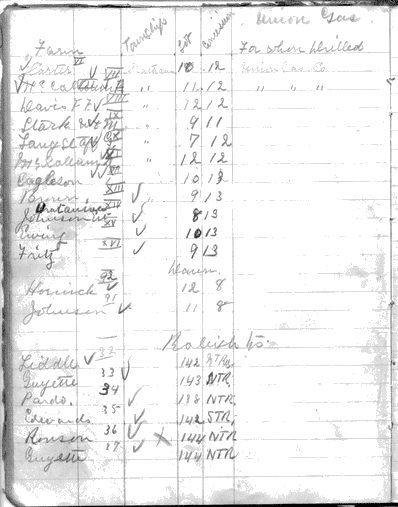 Union Gas
Farm Township Lot Concession For whom Drilled
VI
Carter 10 12 Union Gas Co
VII
McCallum " 11 12 " " "
VIII
Davis F F " 12 12
IX
Stark " 9 11
X
" 7 12
XI
McCallum " 12 12
Eagleson 10 13
XIII
Brown 9 13
XIV
Johnson 8 13
XV
Ewing 10 13
XVI
Fritz 9 13
92
Hornick 12 8
91
Johnson 11 8
Raleigh
Liddle 32 142 STR
Guyette 33 143 NTR
Pardo 34 138 NTR
Edwards 35 142 STR
Ronson 36 X 144 NTR
Guyette 37 144 NTR